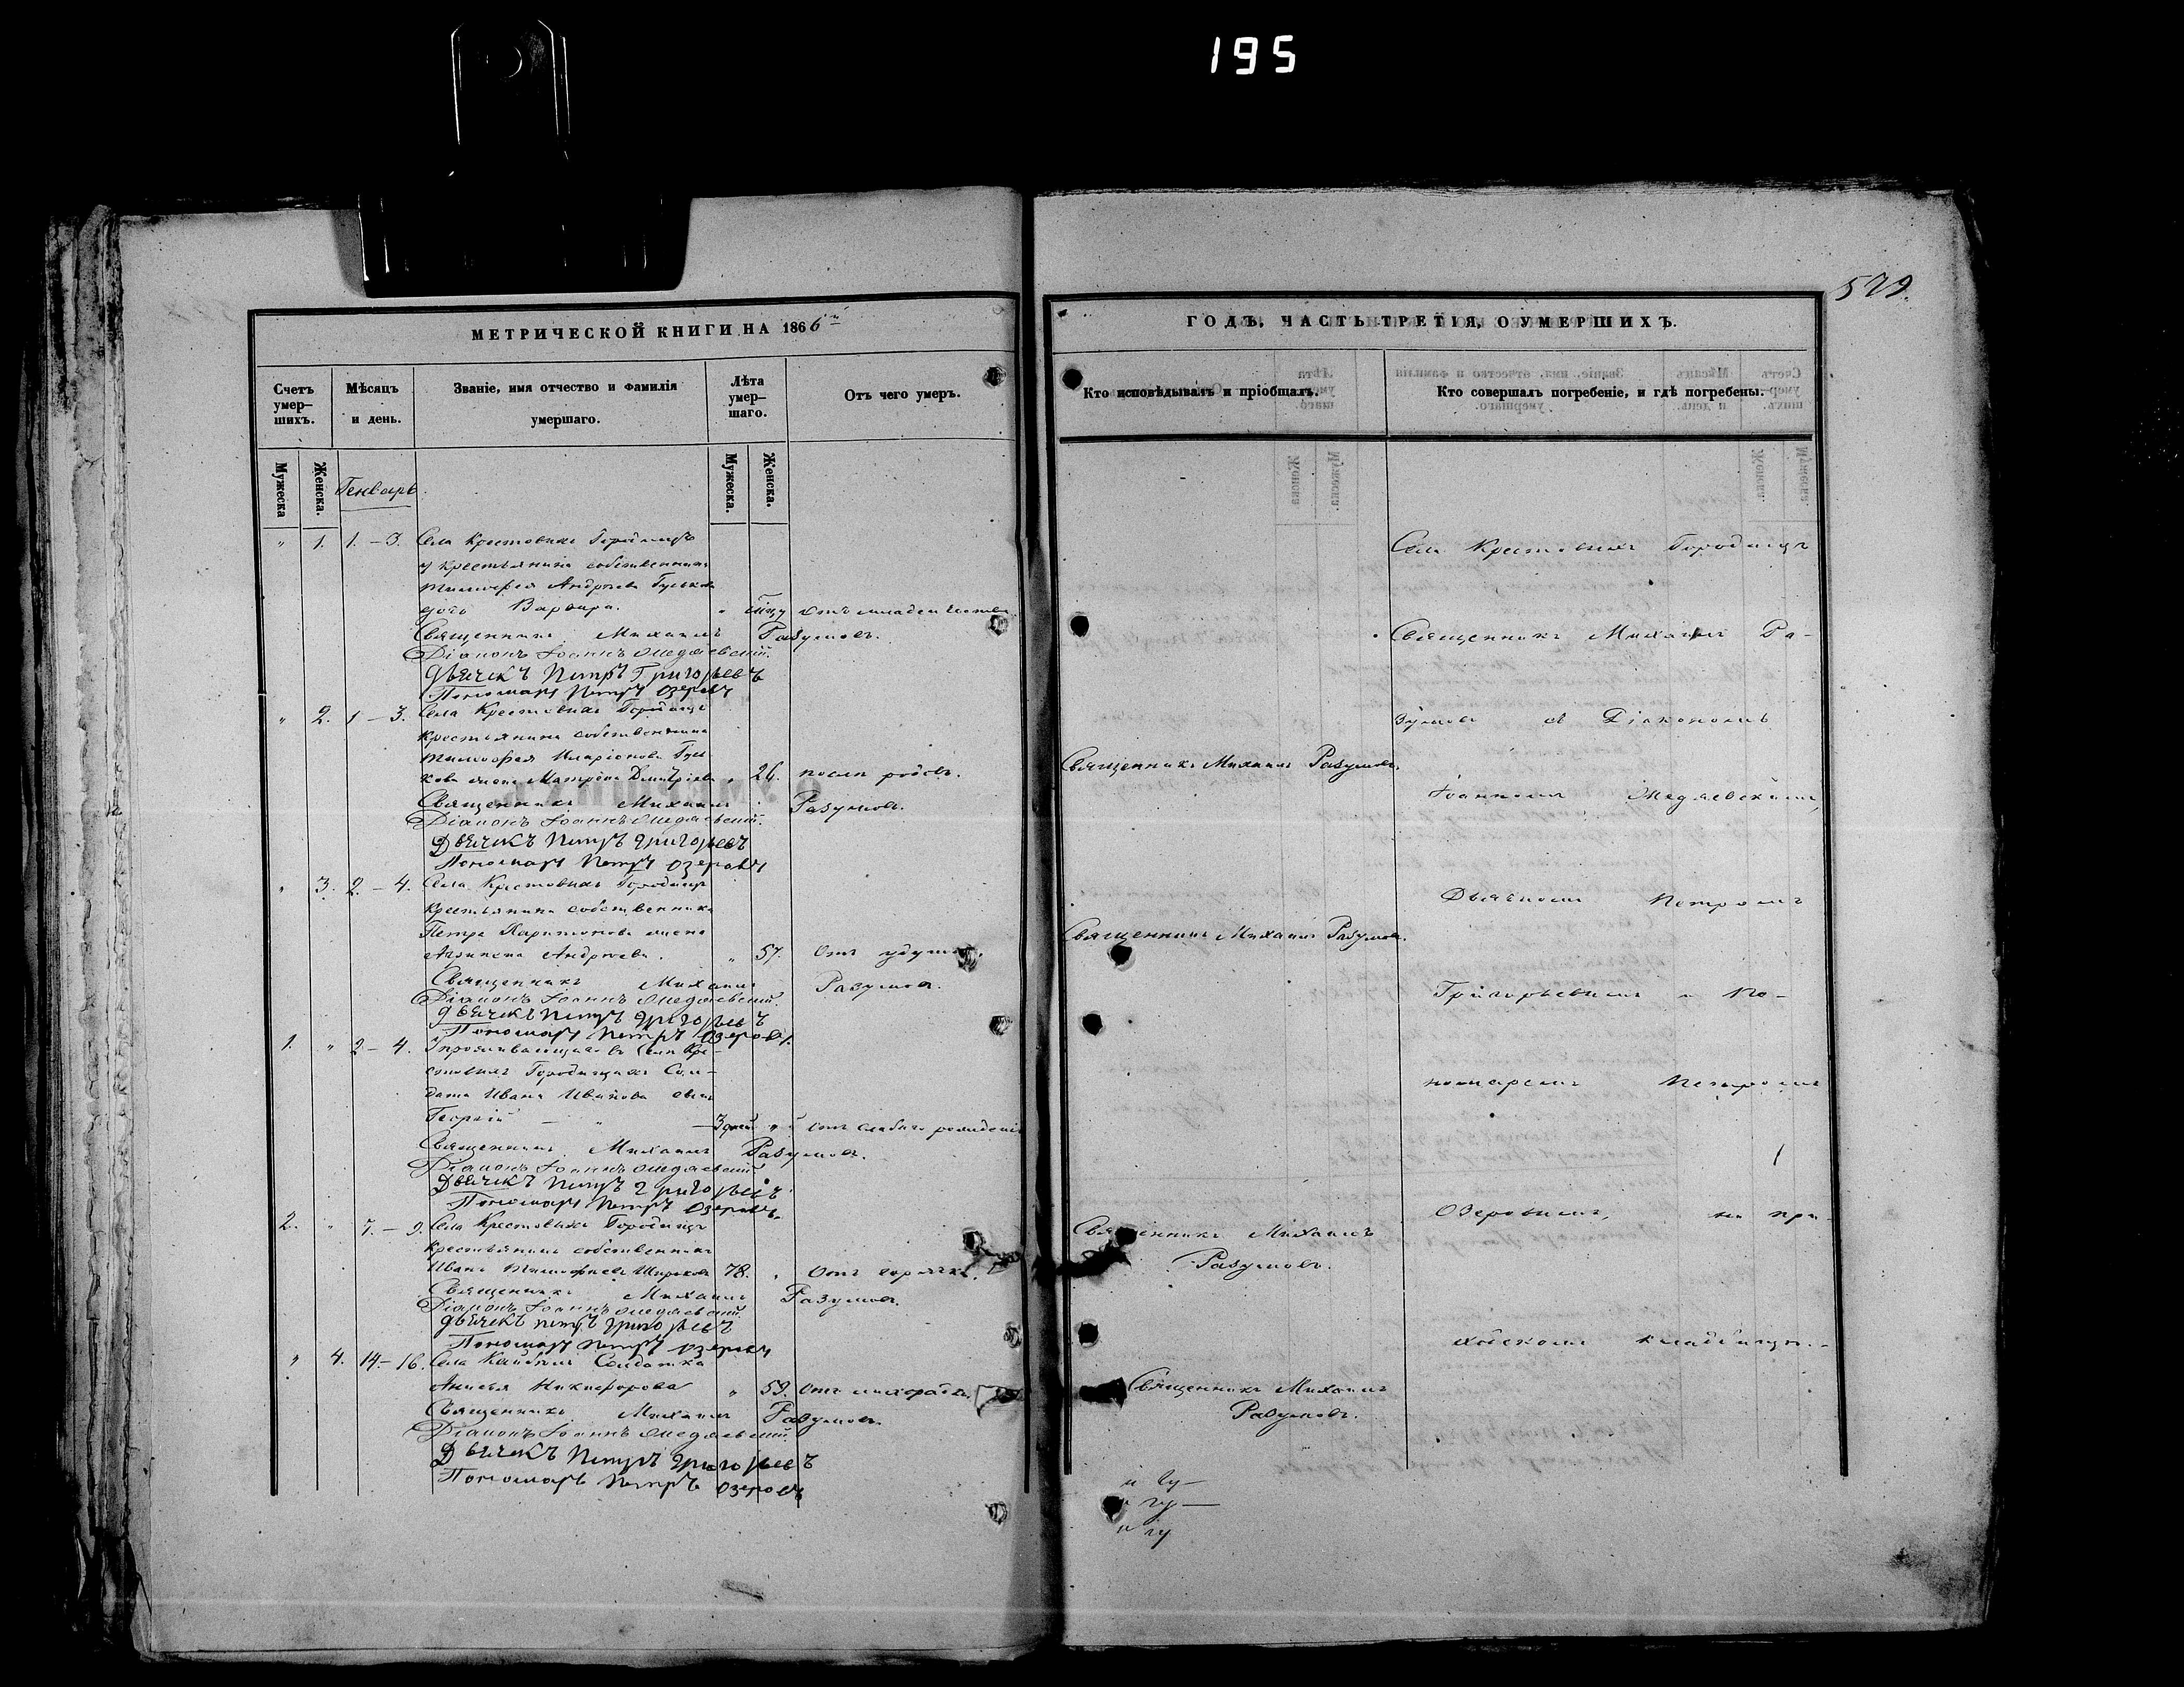 195
529.
МЕТРИЧЕСКОЙ КНИГИ НА 1866й
Счетъ умер-шихъ.
Мѣсяцъ и день.
Званіе, имя отчество и фамилія умершаго.
Лѣта умер-шаго.
Отъ чего умеръ.
Мужеска
Женска.
Генварь.
Мужеска.
Женска.
" 1. 1. – 3. Села Крестовыхъ Городищъ
у крестьянина собственника
Тимофея Андреева Гуськова
дочь Варвара. " отъ младенчества
Священникъ Михаилъ Разумовъ.
Діаконъ Іоаннъ Медяевскій.
Дьячекъ Петръ Григорьевъ
Пономарь Петръ Озеровъ
" 2. 1 – 3. Села Крестовыхъ Городищъ
крестьянина собственника
Тимофея Иларіонова Гусь-
кова жена Матрона Дмитріева " 26. послѣ родовъ.
Священникъ Михаилъ Разумовъ.
Діаконъ Іоаннъ Медяевскій.
Дьячекъ Петръ Григорьевъ
Пономарь Петръ Озеровъ
" 3. 2. – 4. Села Крестовыхъ Городищъ
крестьянина собственника
Петра Харитонова жена
Андреева. " 57. Отъ удушья.
Священникъ Михаилъ Разумовъ.
Діаконъ Іоаннъ Медяевскій.
Дьячекъ Петръ Григорьевъ
Пономарь Петръ Озеровъ.
1. " 2 – 4. проживающаго въ Селѣ Кре-
стовыхъ Городищахъ Сол-
дата Ивана Иванова сынъ
Георгій – " – 3 дней " отъ слабаго рожденія
Священникъ Михаилъ Разумовъ.
Діаконъ Іоаннъ Медяевскій.
Дьячекъ Петръ Григорьевъ
Пономарь Петръ Озеровъ.
2. " 7. – 9. Села Крестовыхъ Городищъ
крестьянинъ собственникъ
Иванъ Тимофеевъ Широковъ 78. " Отъ горячки.
Священникъ Михаилъ Разумовъ.
Діаконъ Іоаннъ Медяевскій.
Дьячекъ Петръ Григорьевъ
Пономарь Петръ Озеровъ
" 4. 14 – 16. Села Солдатка
Анисья Никифорова " 59. Отъ лихорадки.
Священникъ Михаилъ Разумовъ.
Діаконъ Іоаннъ Медяевскій.
Дьячекъ Петръ Григорьевъ
Пономарь Петръ Озеровъ
ГОДЪ, ЧАСТЬ ТРЕТІЯ, О УМЕРШИХЪ.
Кто исповѣдывалъ и пріобщалъ.
Кто совершалъ погребеніе, и гдѣ погребены.
Священникъ Михаилъ Разумовъ.
Священникъ Михаилъ Разумовъ.
Священникъ Михаилъ
Разумовъ.
Священникъ Михаилъ
Разумовъ.
Села Крестовыхъ Городищъ
Священникъ Михаилъ Ра-
зумовъ съ Діакономъ
Іоанномъ Медяевскимъ,
Дьячкомъ Петромъ
Григорьевымъ и По-
номаремъ Петромъ
Озеровымъ, на при-
ходскомъ кладбищѣ.